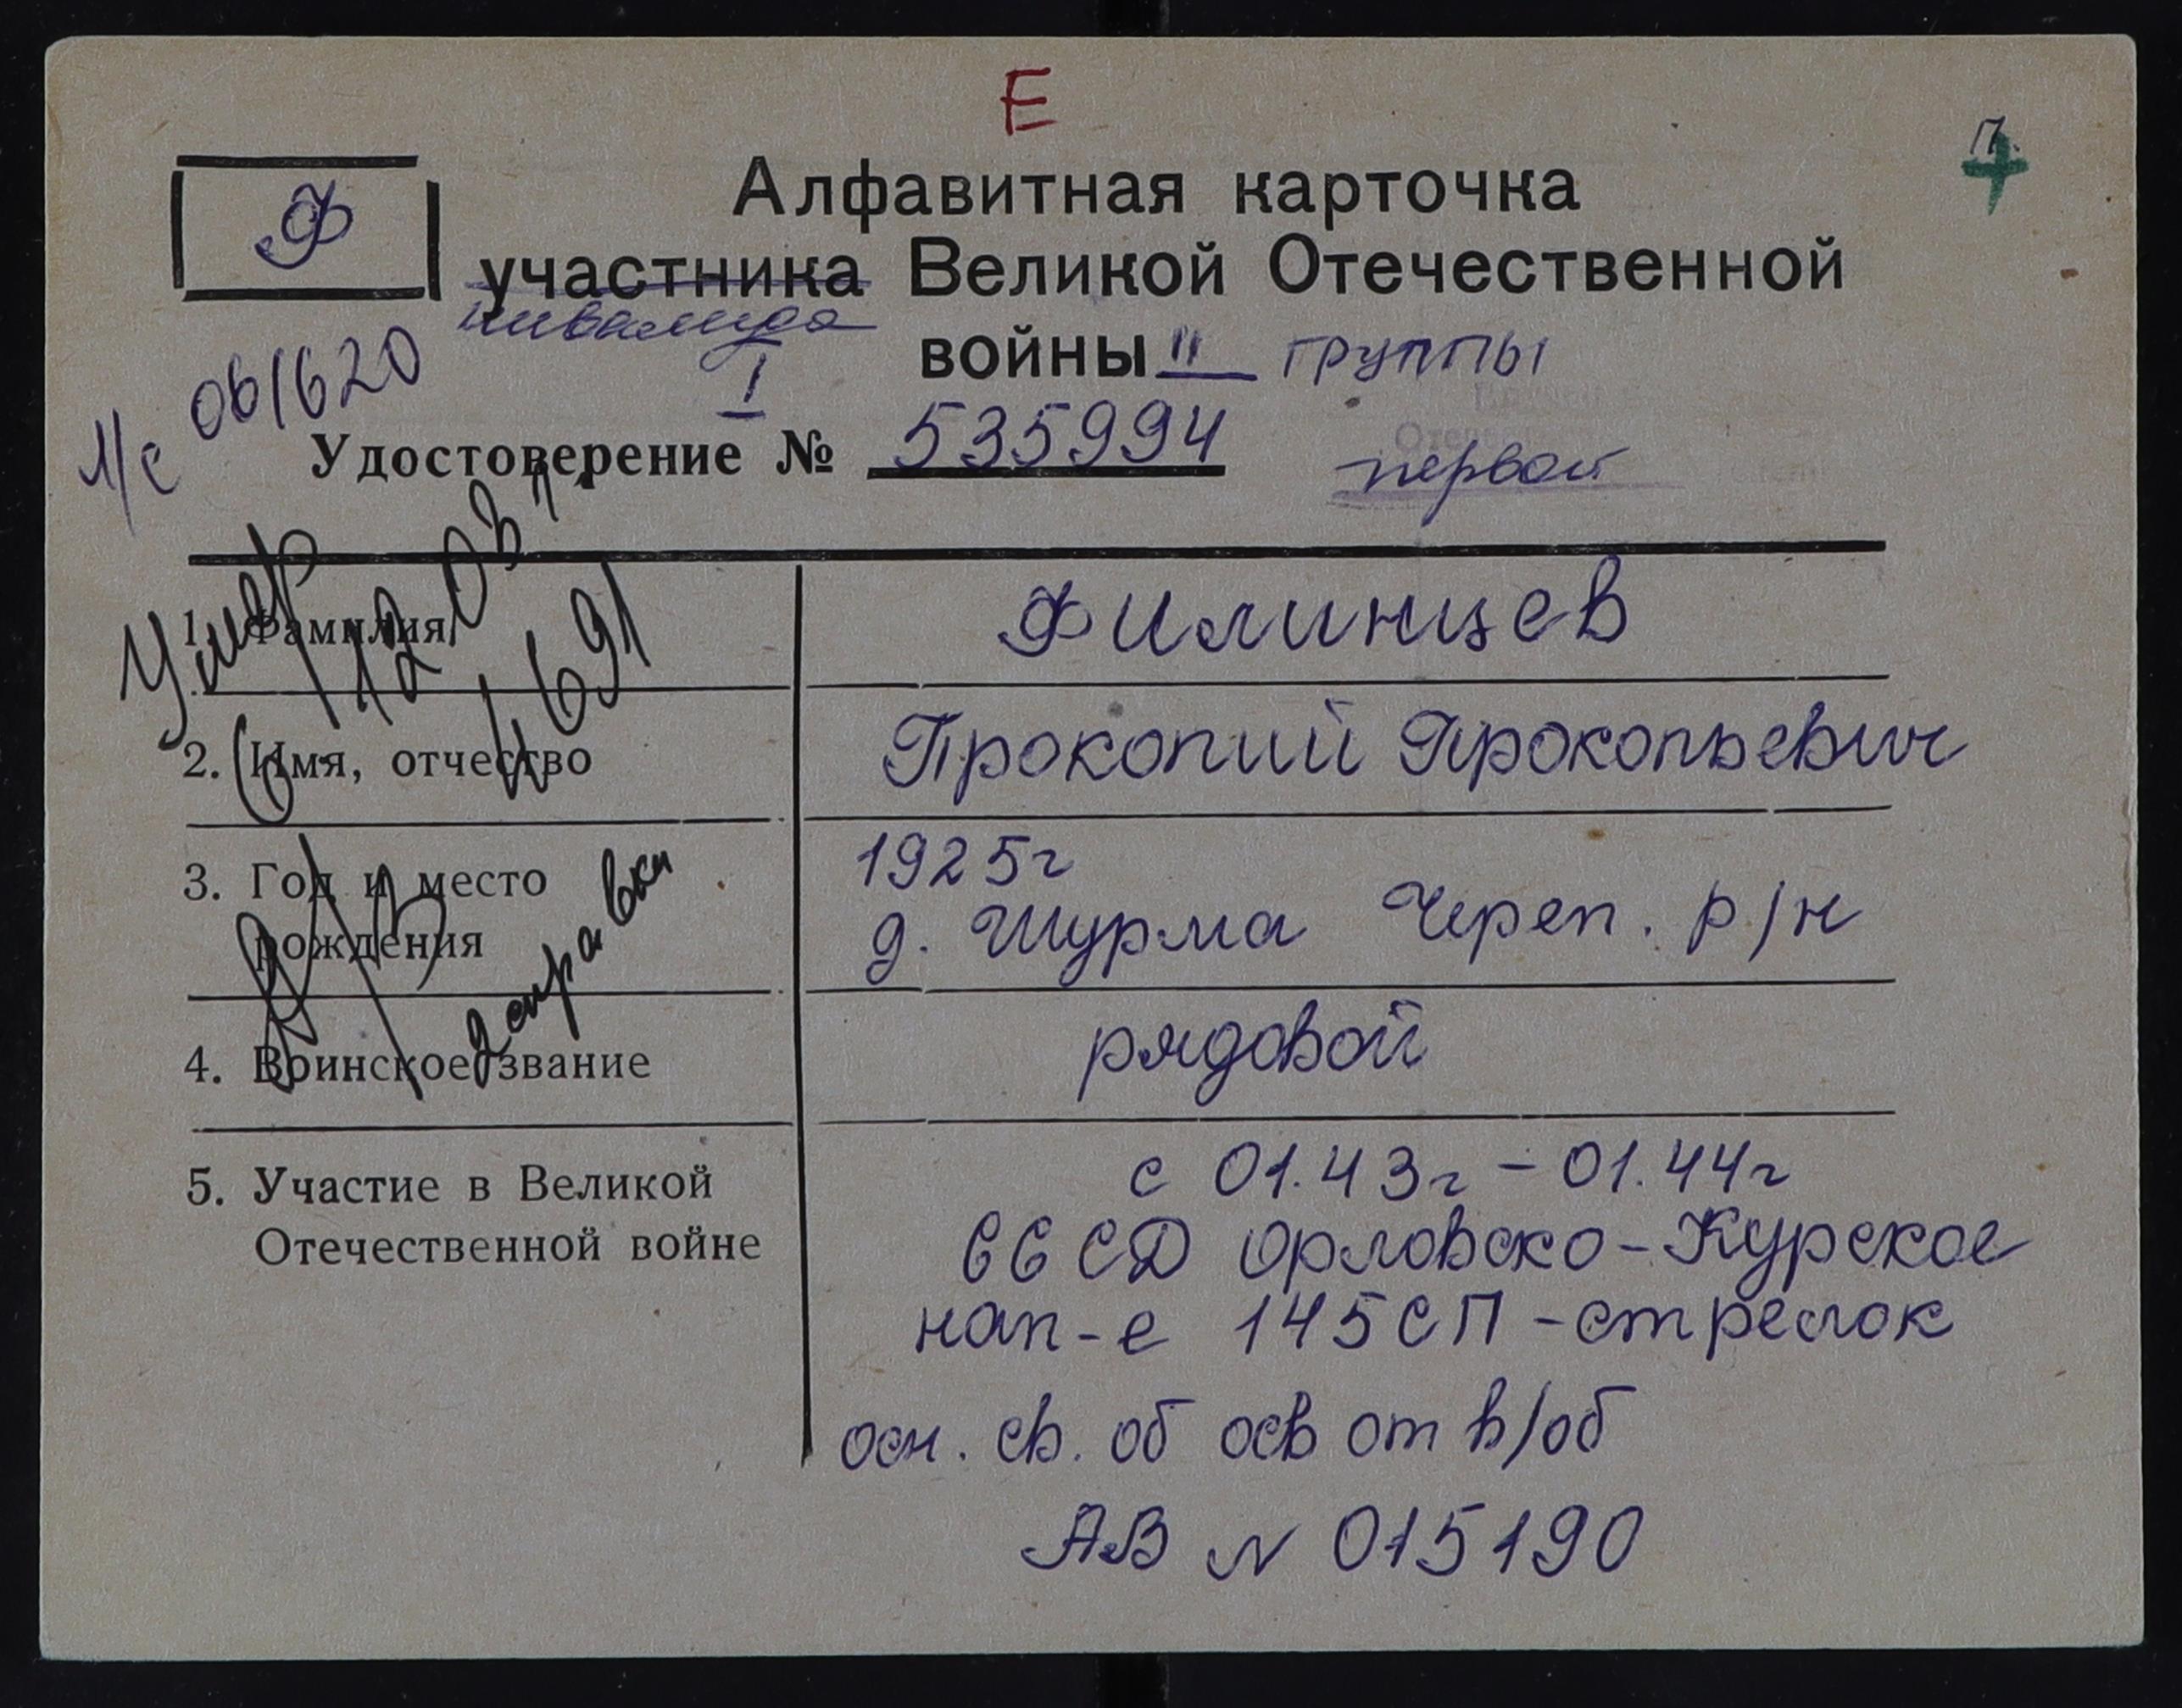 Е
П.
Ф
Алфавитная карточка
участника Великой Отечественной
инвалида
войны II группы
I
л/с 061620
Удостоверение № 535994
первой
Умер
12.03
4691
1. Фамилия
Филинцев
2. Имя, отчество
Прокопий Прокопьевич
3. Год и место
рождения
1925г
д. Шурма Череп. р/н
справки
4. Воинское звание
рядовой
5. Участие в Великой
Отечественной войне
с 01.43г - 01.44г
66 СД Орловско-Курское
нап-е 145СП - стрелок
осн. св. об осв от в/об
АВ N 015190